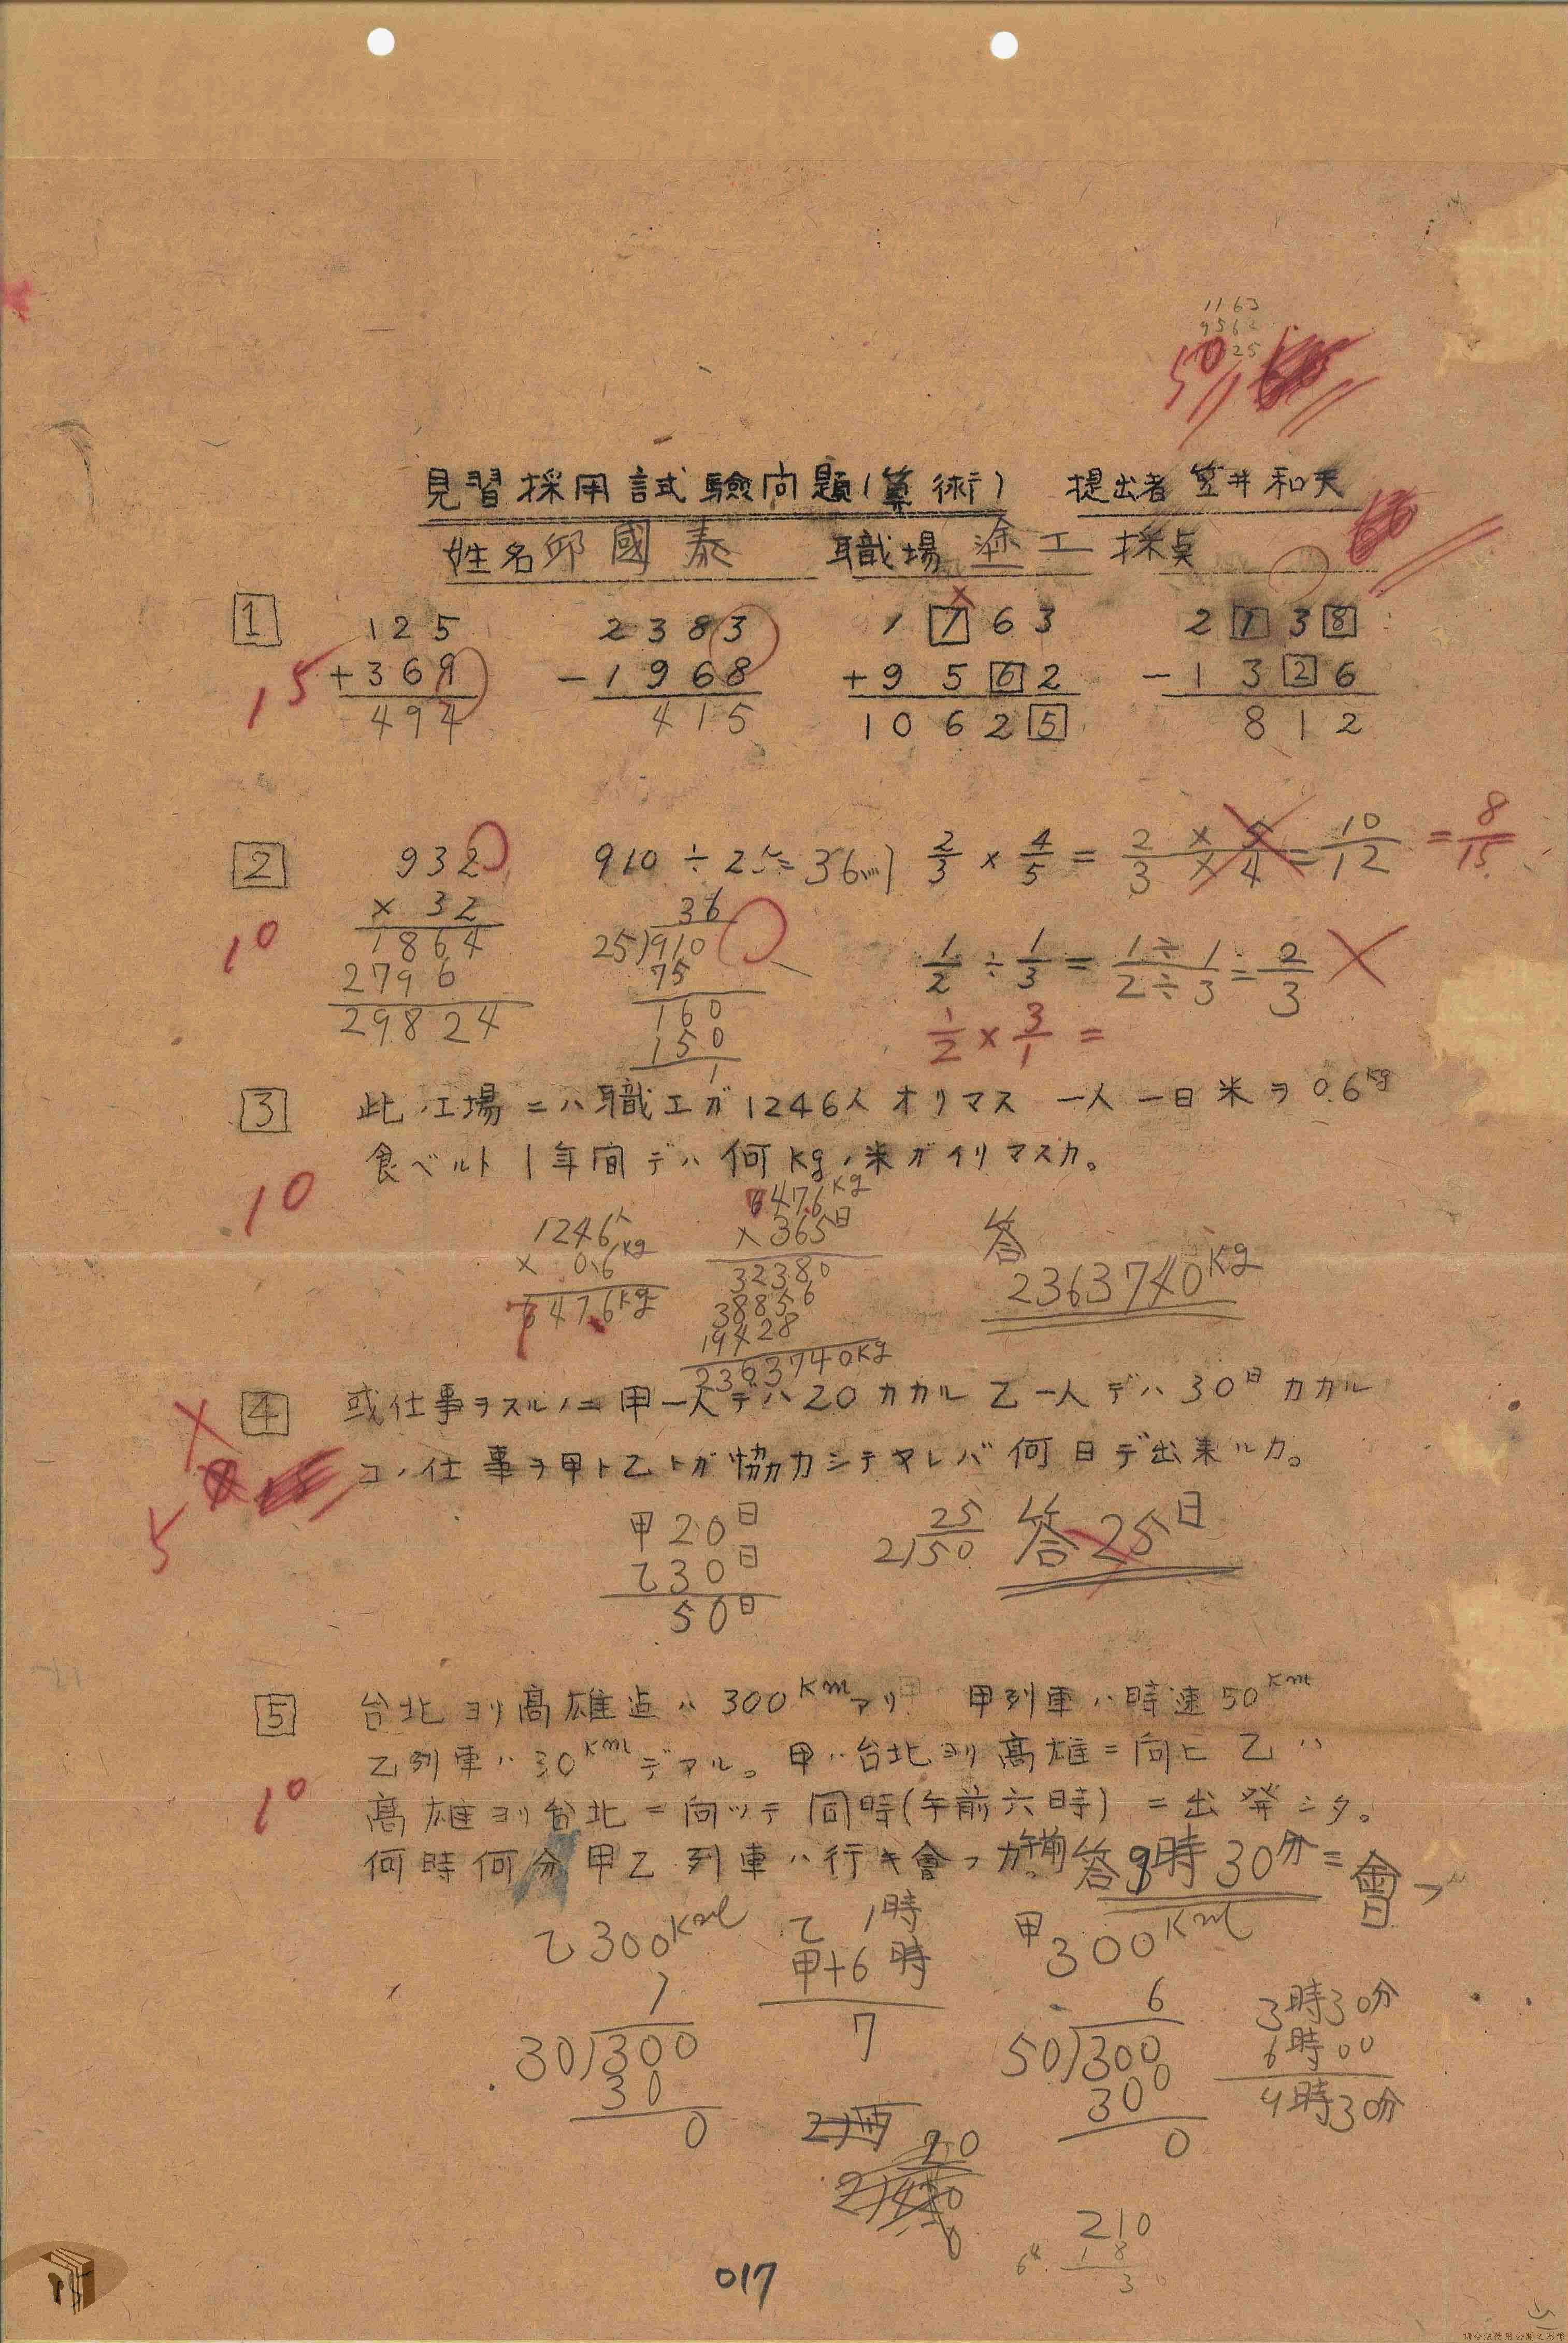 1163
956
25
50
見習採用試驗问題(算術) 提出者 笠井和夫
姓名 邱國泰 職場 塗工 採点
1
125
+369
494
2383
-1968
415
1 7 6 3
+9 5 6 2
1 0 6 2 5
2 1 3 8
-1 3 2 6
8 1 2
15
2
932
× 32
1864
2796
29824
910 ÷ 25 = 36...1
36
25)910
75
160
150
1
2/3 × 4/5 = 2×5/3×4 = 10/12 = 8/15
1/2 ÷ 1/3 = 1÷1/2÷3 = 2/3
1/2 × 3/1 =
10
3 此ノ工場ニハ職工ガ1246人オリマス 一人一日米ヲ0.6kg
食ベルト1年間デハ何kgノ米ガイリマスカ。
10
1246人
× 0.6kg
7476kg
6476kg
×365日
32380
38856
19428
2363740kg
答
2363740kg
4 或仕事ヲスルノニ甲一人デハ20カカル乙一人デハ30日カカル
コノ仕事ヲ甲ト乙トガ協力シテヤレバ何日デ出来ルカ。
5
甲20日
乙30日
50日
25
2)50
答25日
5 台北ヨリ高雄迄ハ300Kmアリ 甲列車ハ時速50Km
乙列車ハ30Kmデアル。甲ハ台北ヨリ高雄ニ向ヒ乙ハ
高雄ヨリ台北ニ向ツテ同時(午前六時)ニ出発シタ。
何時何分甲乙列車ハ行キ會フカ。午前答9時30分ニ會フ
10
乙300Km
1
30)300
30
0
乙 1時
甲+6時
7
甲300Km
6
50)300
300
0
3時30分
6時00
9時30分
20
210
18
3
017